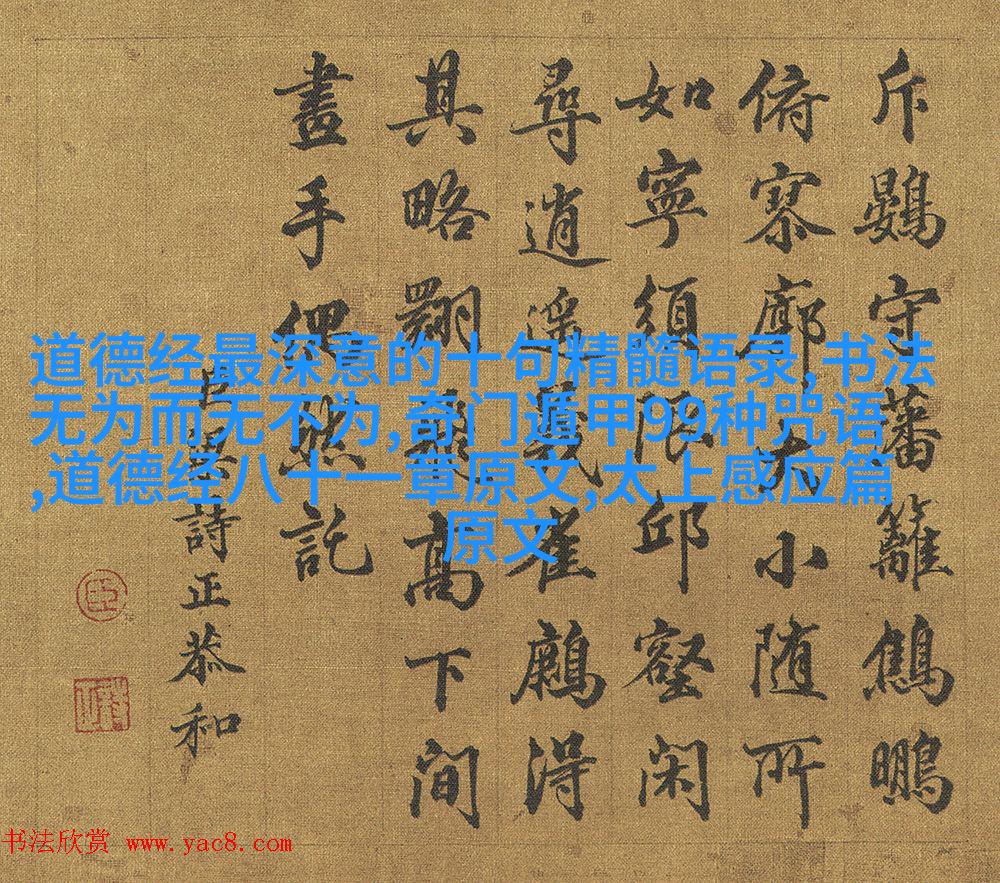 斥鷃守藩籬鷦鵬
俯寥廓大小随所
如寧須限邱壑閑
尋逍遥義雀得
其略翱翔高下間
畫手偶然託
臣梁詩正恭和
臣
道德经最深意的十句精髓语录,书法
无为而无不为,奇门遁甲99种咒语
,道德经八十一章原文,太上感应篇
原文
书法欣赏 www.yac8.com